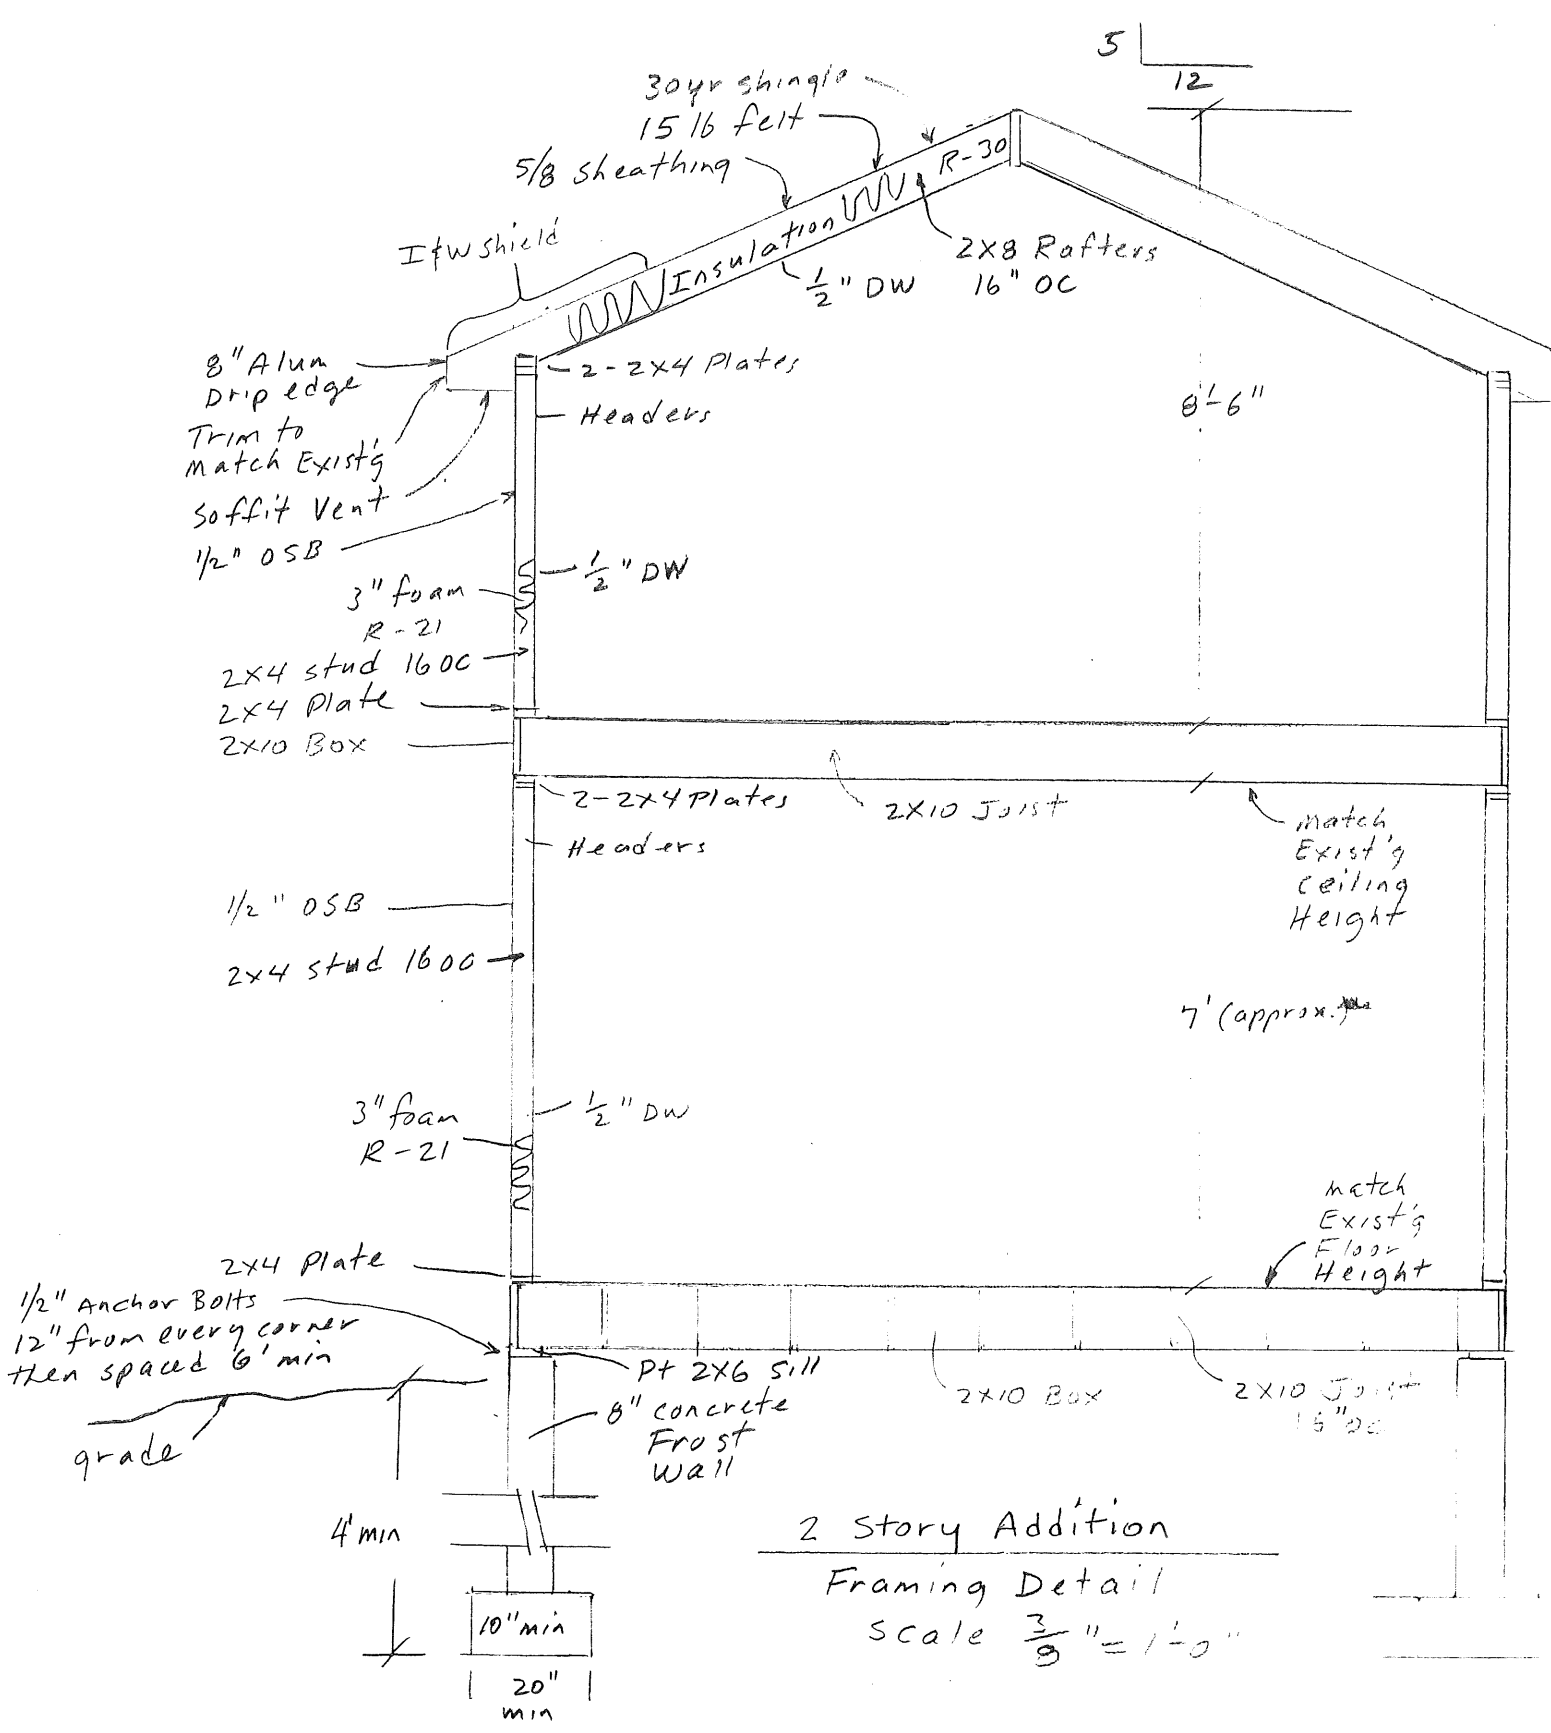 5
12
30yr shingle
15 lb felt
5/8 sheathing
I&W shield
R-30
Insulation
2x8 Rafters
16" OC
1/2" DW
8" Alum
Drip edge
Trim to
Match Exist'g
Soffit Vent
1/2" OSB
2-2x4 Plates
Headers
8'-6"
1/2" DW
3" foam
R-21
2x4 stud 16 OC
2x4 Plate
2x10 Box
2-2x4 Plates
2x10 Joist
Headers
Match
Exist'g
Ceiling
Height
1/2" OSB
2x4 stud 16 OC
7' (approx.)
3" foam
R-21
1/2" DW
Match
Exist'g
Floor
Height
2x4 Plate
1/2" Anchor Bolts
12" from every corner
then spaced 6' min
grade
Pt 2x6 Sill
8" concrete
Frost
Wall
2x10 Box
2x10 Joist
16" OC
4' min
10" min
20"
min
2 Story Addition
Framing Detail
Scale 3/8" = 1'-0"